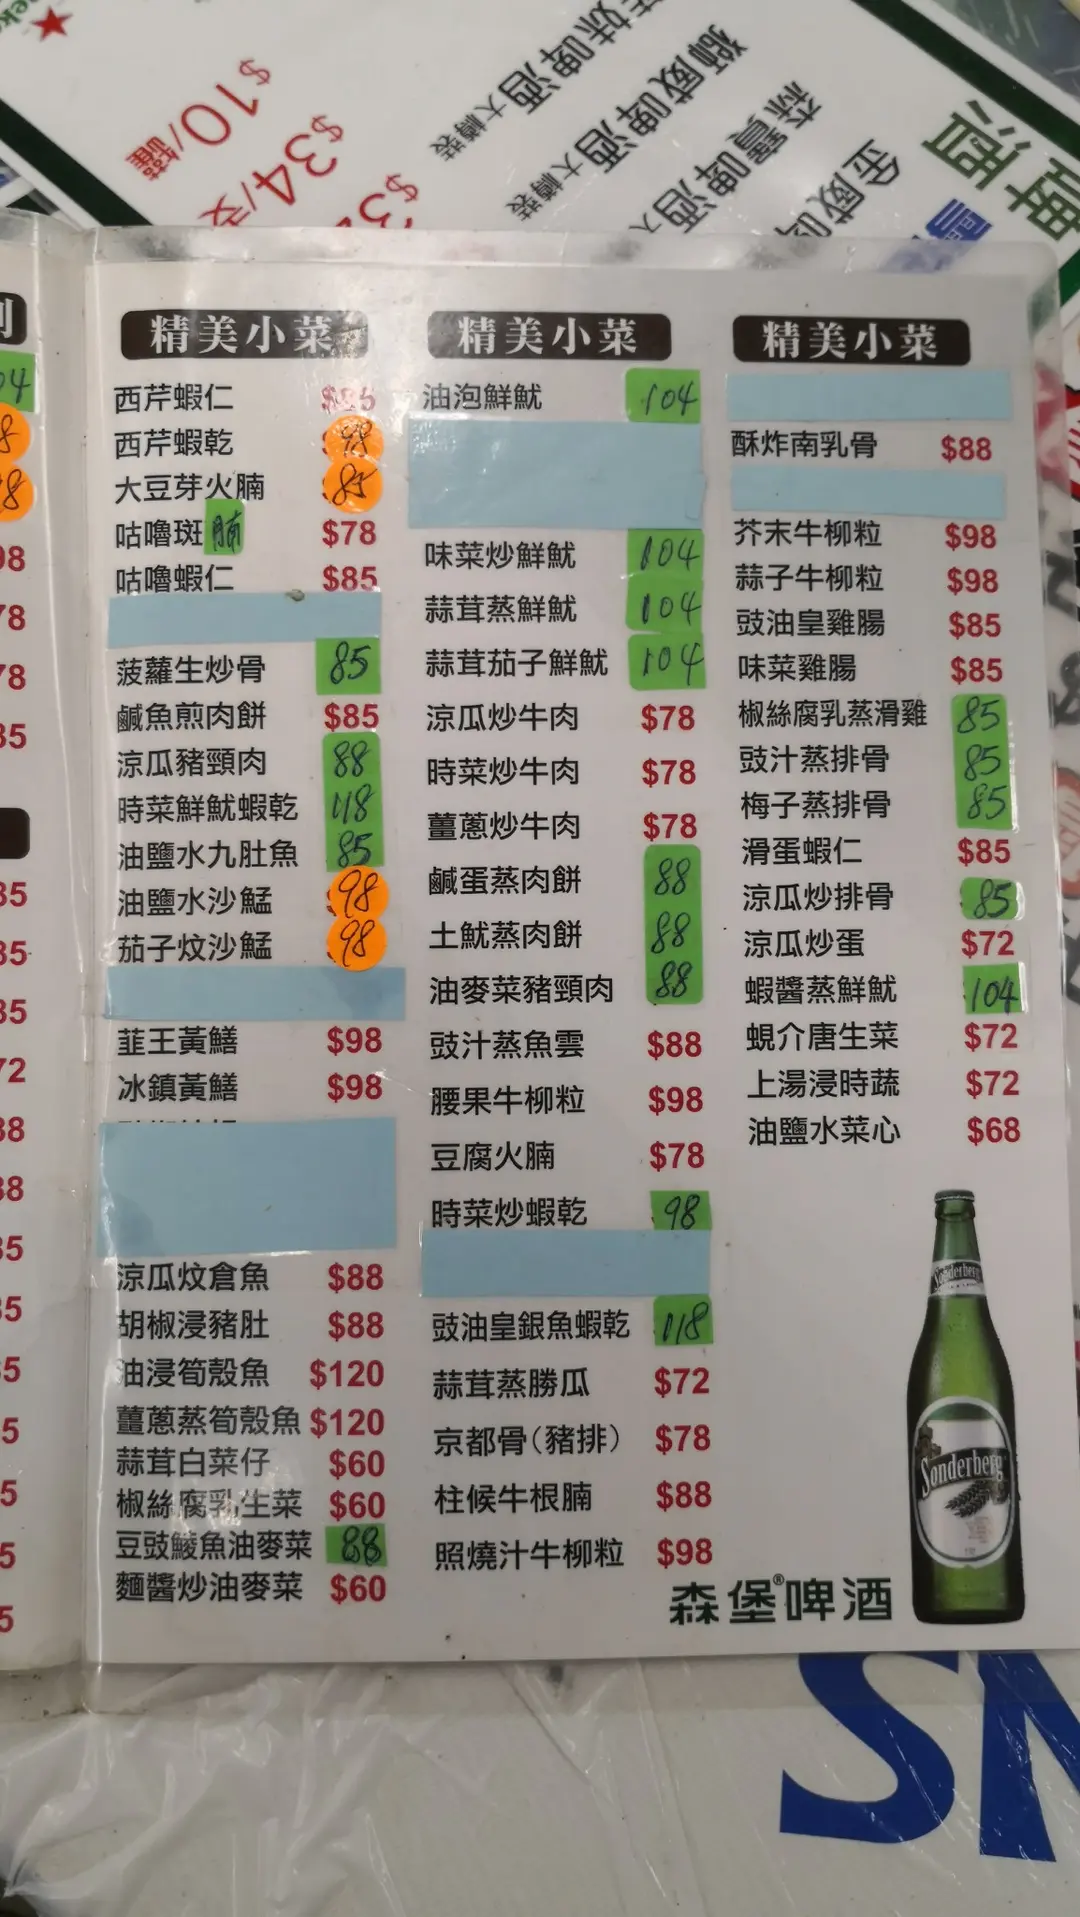 $10/罐
$34/支
啤酒大樽裝
獅威啤酒大樽裝
森寶啤酒大
金威啤
啤酒
精美小菜
西芹蝦仁 $85
西芹蝦乾 98
大豆芽火腩 85
咕嚕斑腩 $78
咕嚕蝦仁 $85
菠蘿生炒骨 85
鹹魚煎肉餅 $85
涼瓜豬頸肉 88
時菜鮮魷蝦乾 118
油鹽水九肚魚 85
油鹽水沙鯭 98
茄子炆沙鯭 98
韮王黃鱔 $98
冰鎮黃鱔 $98
涼瓜炆倉魚 $88
胡椒浸豬肚 $88
油浸筍殼魚 $120
薑蔥蒸筍殼魚 $120
蒜茸白菜仔 $60
椒絲腐乳生菜 $60
豆豉鯪魚油麥菜 88
麵醬炒油麥菜 $60
精美小菜
油泡鮮魷 104
味菜炒鮮魷 104
蒜茸蒸鮮魷 104
蒜茸茄子鮮魷 104
涼瓜炒牛肉 $78
時菜炒牛肉 $78
薑蔥炒牛肉 $78
鹹蛋蒸肉餅 88
土魷蒸肉餅 88
油麥菜豬頸肉 88
豉汁蒸魚雲 $88
腰果牛柳粒 $98
豆腐火腩 $78
時菜炒蝦乾 98
豉油皇銀魚蝦乾 118
蒜茸蒸勝瓜 $72
京都骨（豬排） $78
柱候牛根腩 $88
照燒汁牛柳粒 $98
精美小菜
酥炸南乳骨 $88
芥末牛柳粒 $98
蒜子牛柳粒 $98
豉油皇雞腸 $85
味菜雞腸 $85
椒絲腐乳蒸滑雞 85
豉汁蒸排骨 85
梅子蒸排骨 85
滑蛋蝦仁 $85
涼瓜炒排骨 85
涼瓜炒蛋 $72
蝦醬蒸鮮魷 104
蜆介唐生菜 $72
上湯浸時蔬 $72
油鹽水菜心 $68
Sonderberg
Sonderberg
森堡®啤酒